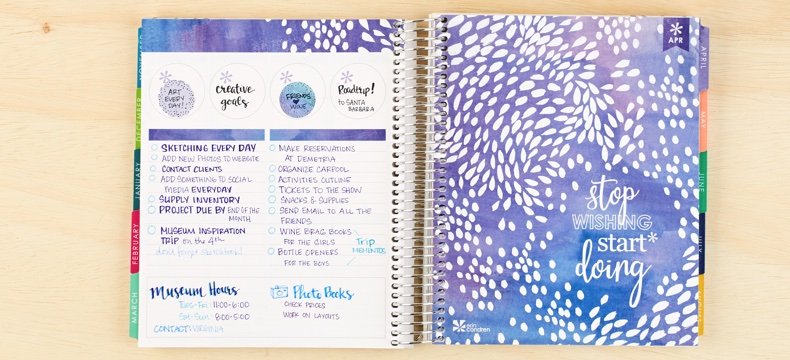 DECEMBER
JANUARY
FEBRUARY
MARCH
ART
EVERY
DAY!
creative
goals
FRIENDS
WINE
Roadtrip!
to SANTA
BARBARA
SKETCHING EVERY DAY
ADD NEW PHOTOS TO WEBSITE
CONTACT CLIENTS
ADD SOMETHING TO SOCIAL
MEDIA EVERYDAY
SUPPLY INVENTORY
PROJECT DUE BY END OF THE
MONTH
MUSEUM INSPIRATION
TRIP on the 4th
dont forget sketchbook!
MAKE RESERVATIONS
AT DEMETRIA
ORGANIZE CARPOOL
ACTIVITIES OUTLINE
TICKETS TO THE SHOW
SNACKS & SUPPLIES
SEND EMAIL TO ALL THE
FRIENDS
WINE BRAG BOOKS
FOR THE GIRLS
BOTTLE OPENERS
FOR THE BOYS
Trip
MEMENTOS
Museum Hours
Tues-Fri 11:00-6:00
Sat-Sun 8:00-5:00
CONTACT: VIRGINIA
Photo Books
CHECK PRICES
WORK ON LAYOUTS
APR
stop
WISHING
start*
doing
erin
condren
APRIL
MAY
JUNE
JULY